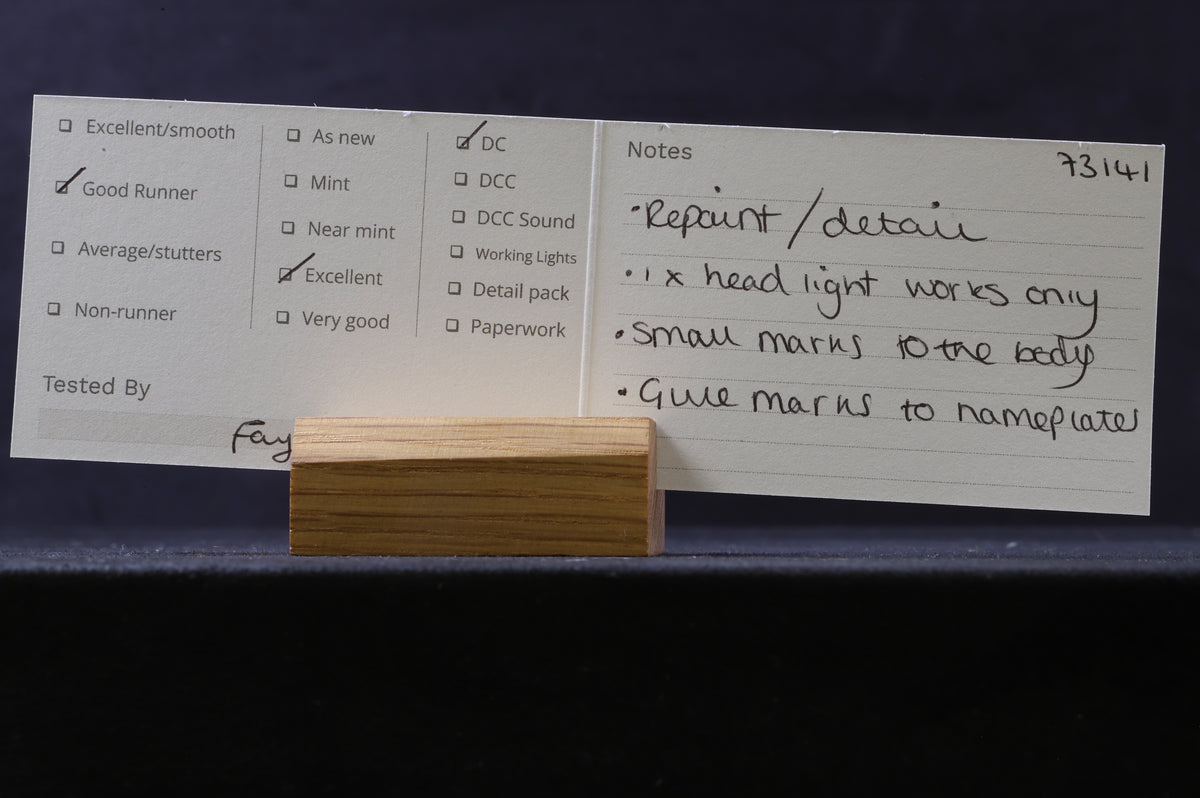 Excellent/smooth
Good Runner
Average/stutters
Non-runner
As new
Mint
Near mint
Excellent
Very good
DC
DCC
DCC Sound
Working Lights
Detail pack
Paperwork
Tested By
Fay
Notes
73141
• Repaint / detail
• 1 x head light works only
• Small marks to the body
• Glue marks to nameplates